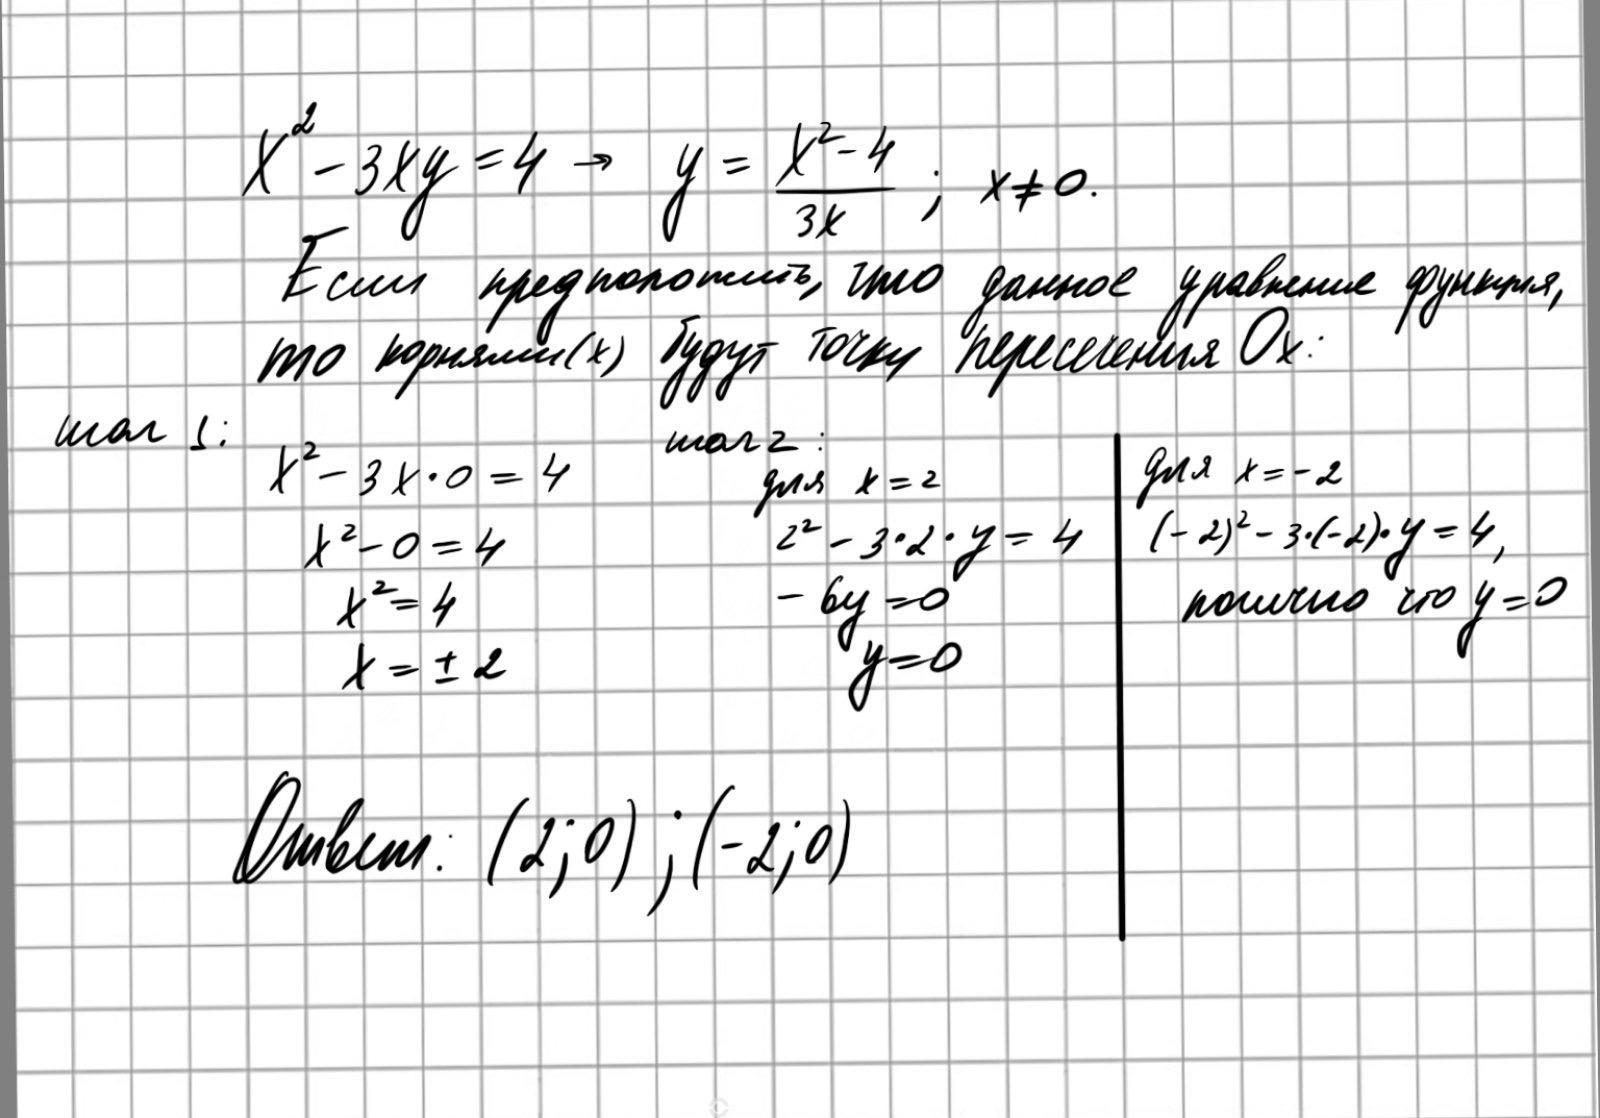 x² - 3xy = 4 → y = (x² - 4)/(3x) ; x ≠ 0.
Если предположить, что данное уравнение функция,
то корнями(x) будут точки пересечения Ox:
шаг 1:
x² - 3x·0 = 4
x² - 0 = 4
x² = 4
x = ± 2
шаг 2:
для x = 2
2² - 3·2·y = 4
- 6y = 0
y = 0
для x = -2
(-2)² - 3·(-2)·y = 4,
логично что y = 0
Ответ: (2;0) ; (-2;0)